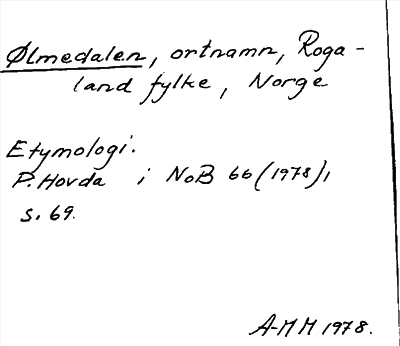 Ølmedalen, ortnamn, Roga-
land fylke, Norge
Etymologi.
P. Hovda i NoB 66 (1978),
s. 69.
A-MM 1978.